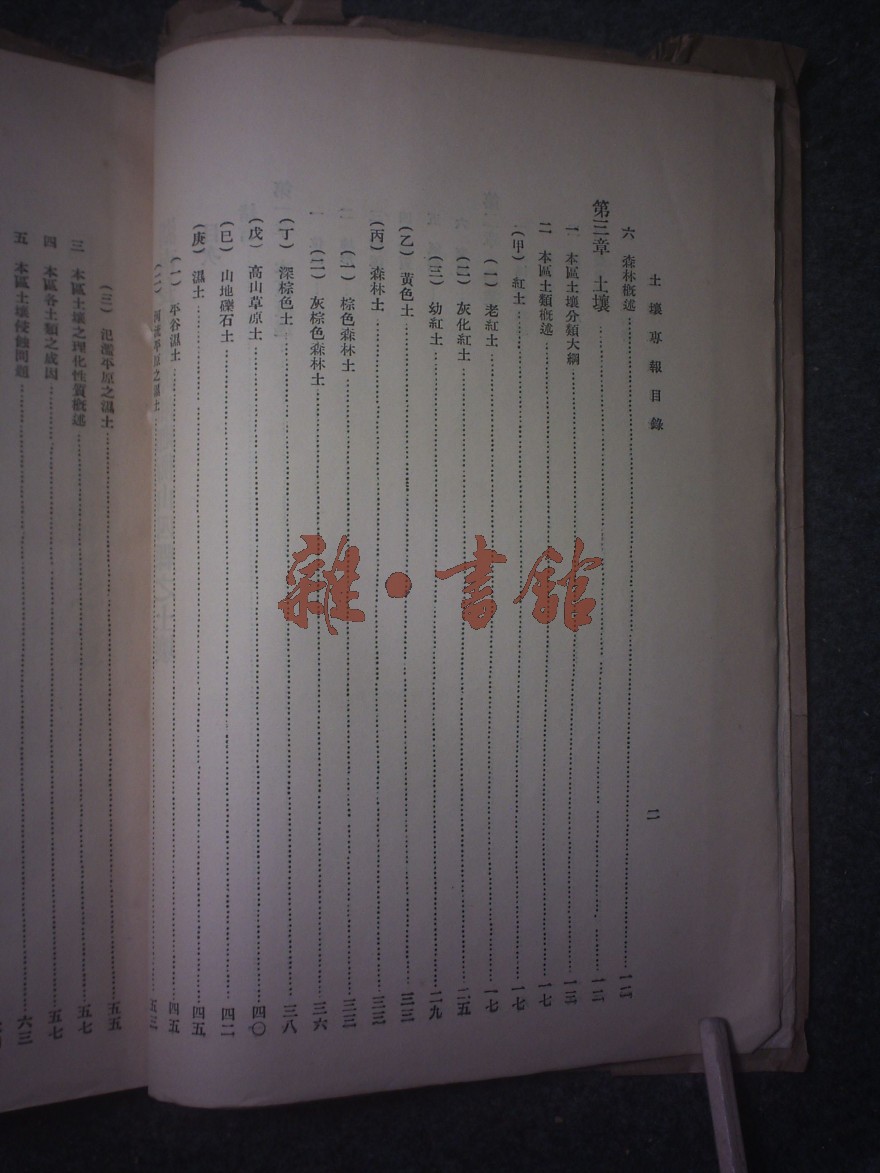 土壤專報目錄 二
六 森林概述……一二
第三章 土壤……一二
一 本區土壤分類大綱……一三
二 本區土類概述……一七
(甲) 紅土……一七
(一) 老紅土……一七
(二) 灰化紅土……二五
(三) 幼紅土……二九
(乙) 黃色土……三三
(丙) 森林土……三三
(一) 棕色森林土……三三
(二) 灰棕色森林土……三六
(丁) 深棕色土……三八
(戊) 高山草原土……四〇
(巳) 山地礫石土……四二
(庚) 濕土……四五
(一) 平谷濕土……四五
(二) 河流平原之濕土……五三
(三) 氾濫平原之濕土……五五
三 本區土壤之理化性質概述……五七
四 本區各土類之成因……五七
五 本區土壤侵蝕問題……六三
雜·書館